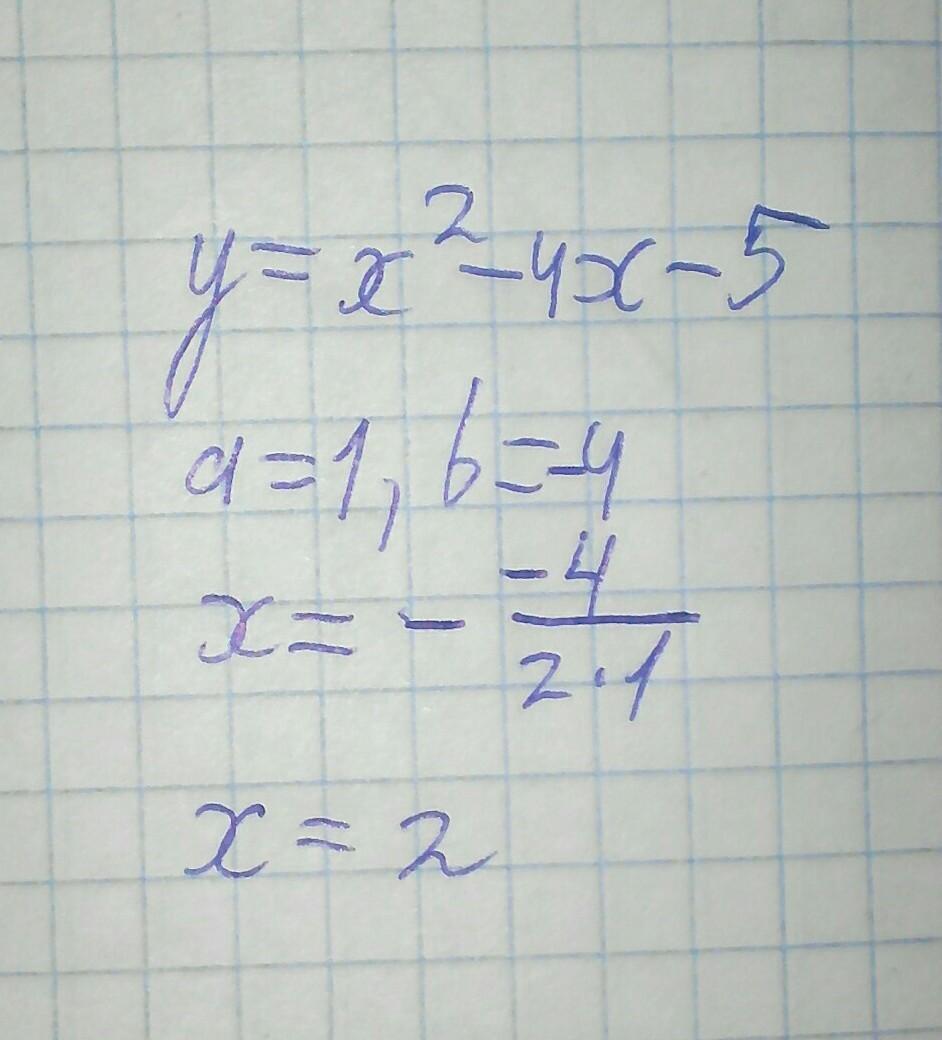 y = x² - 4x - 5
a = 1, b = -4
x = - \frac{-4}{2·1}
x = 2